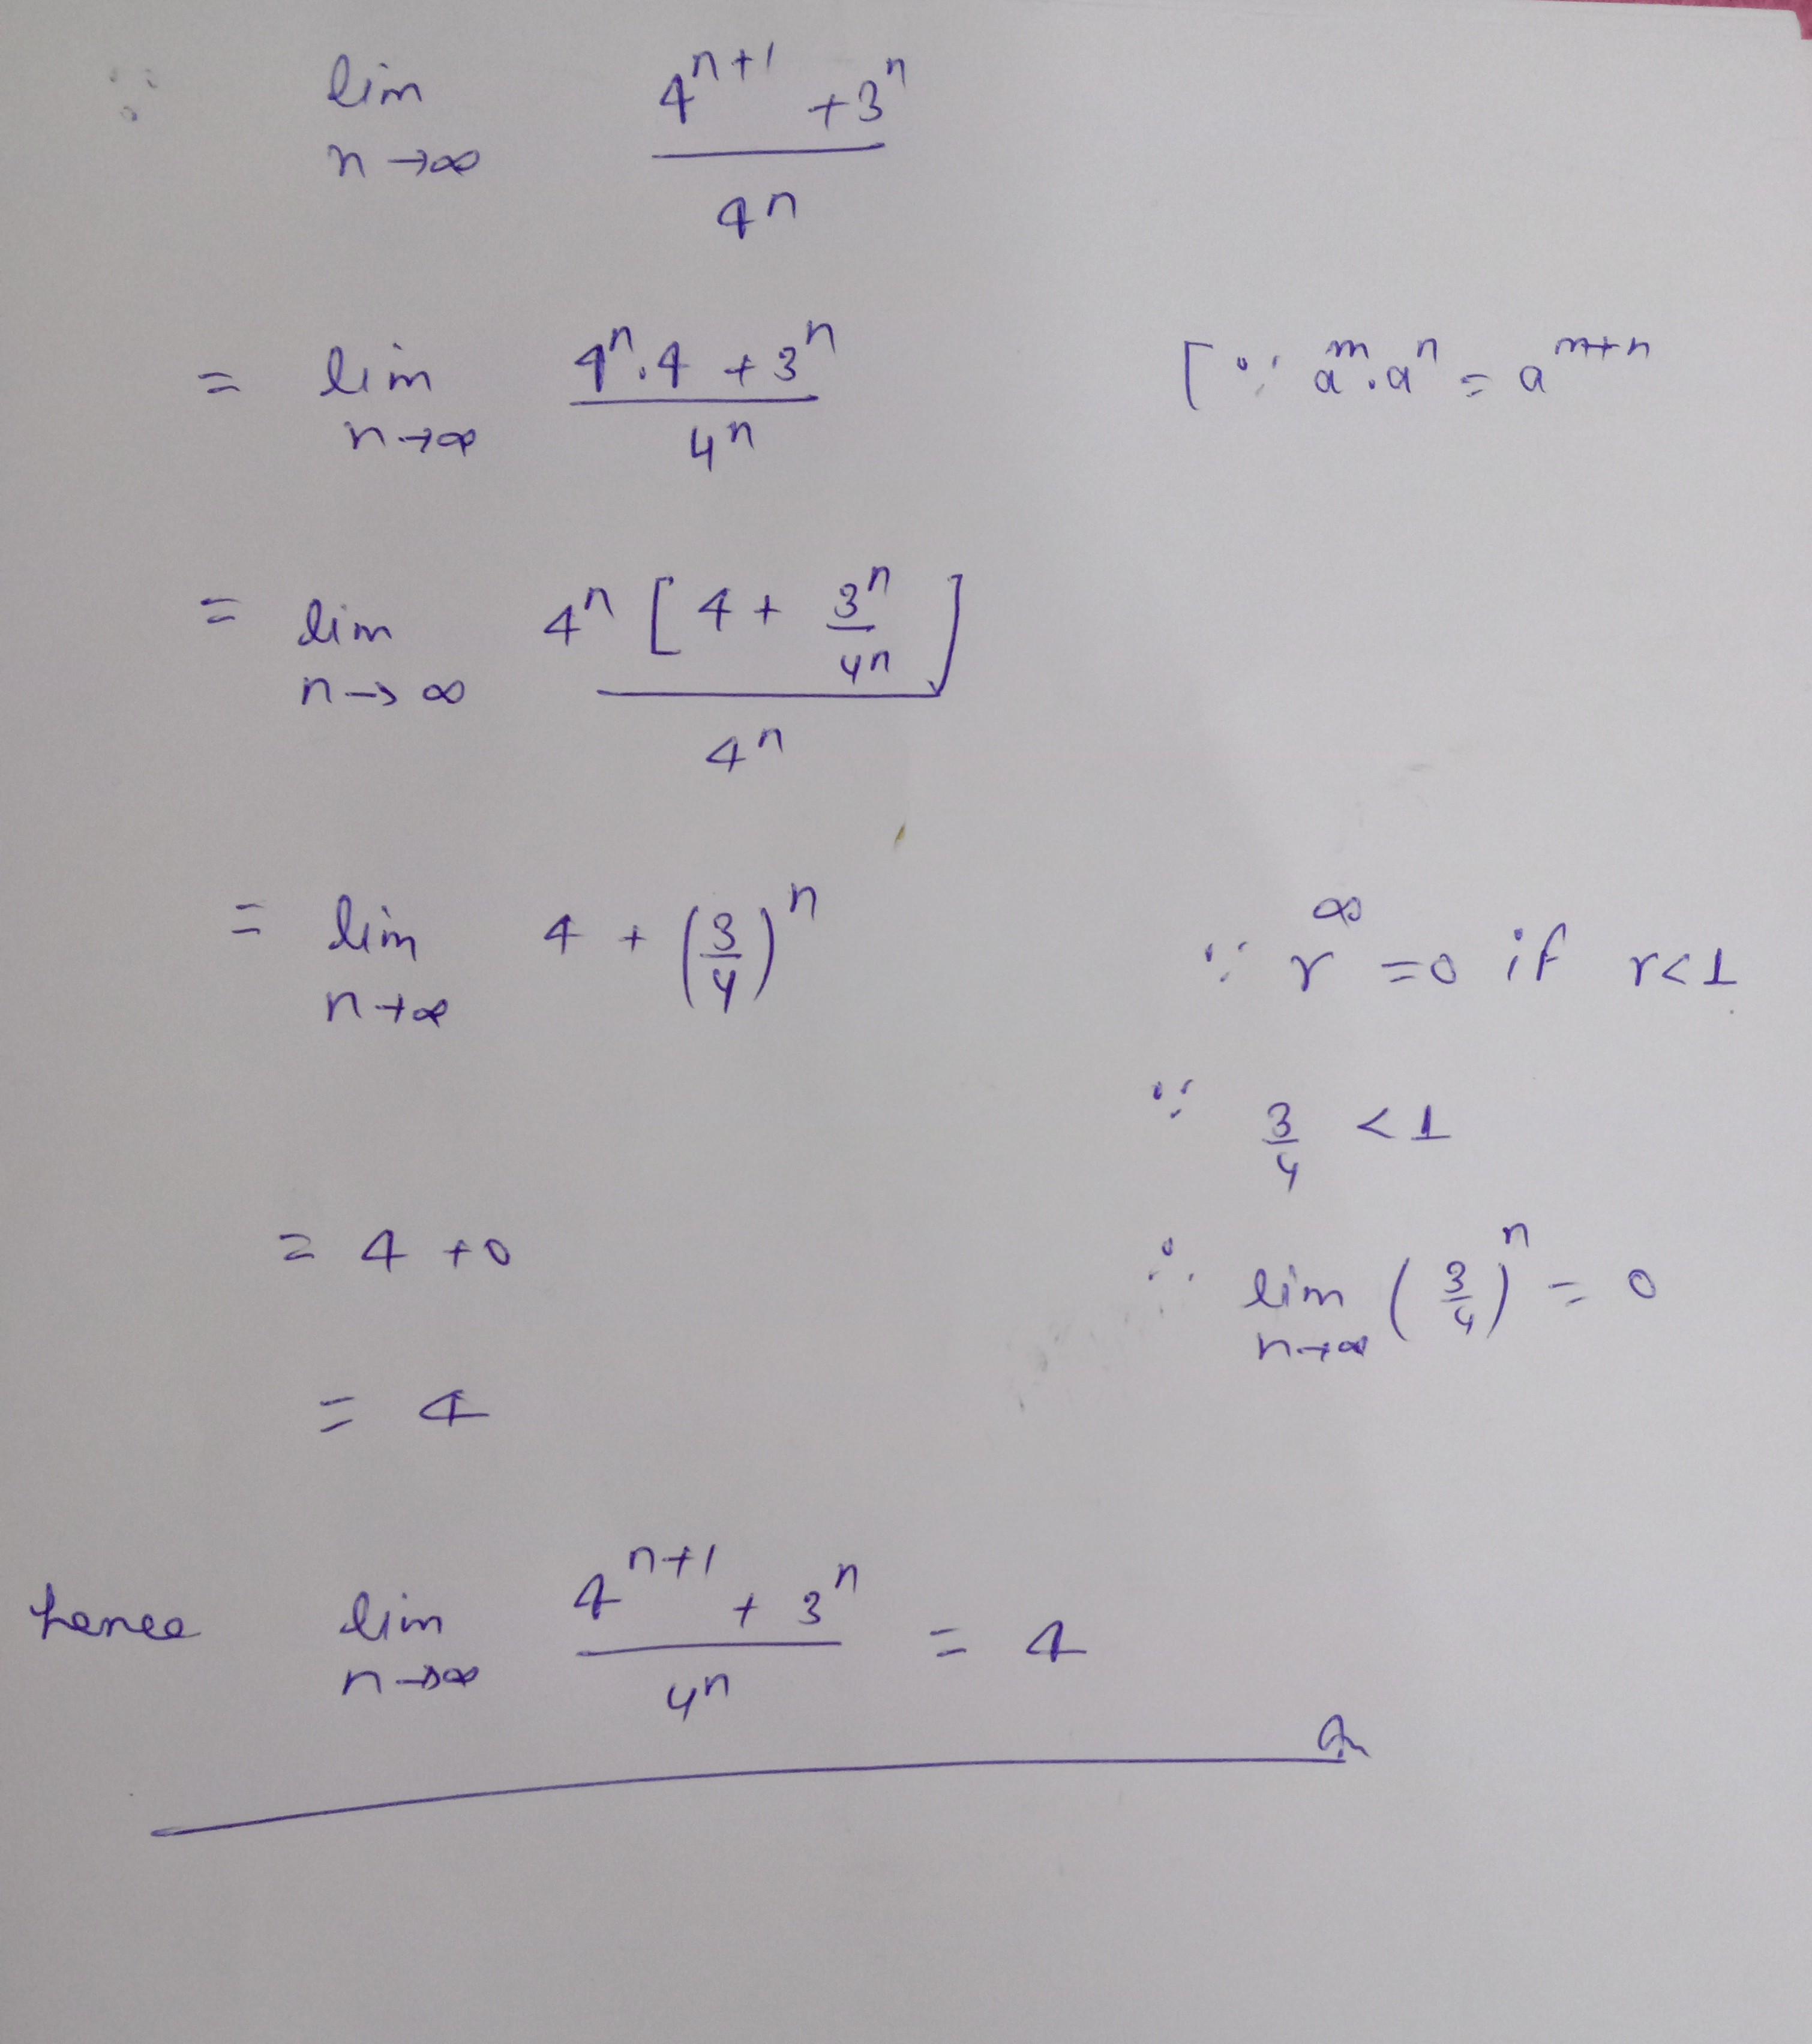 ∵ lim n→∞ (4^(n+1) + 3^n) / 4^n
= lim n→∞ (4^n.4 + 3^n) / 4^n [∵ a^m.a^n = a^(m+n)
= lim n→∞ 4^n [4 + 3^n/4^n] / 4^n
= lim n→∞ 4 + (3/4)^n ∵ r^∞ = 0 if r<1
∵ 3/4 < 1
= 4 + 0 ∴ lim n→∞ (3/4)^n = 0
= 4
hence lim n→∞ (4^(n+1) + 3^n) / 4^n = 4